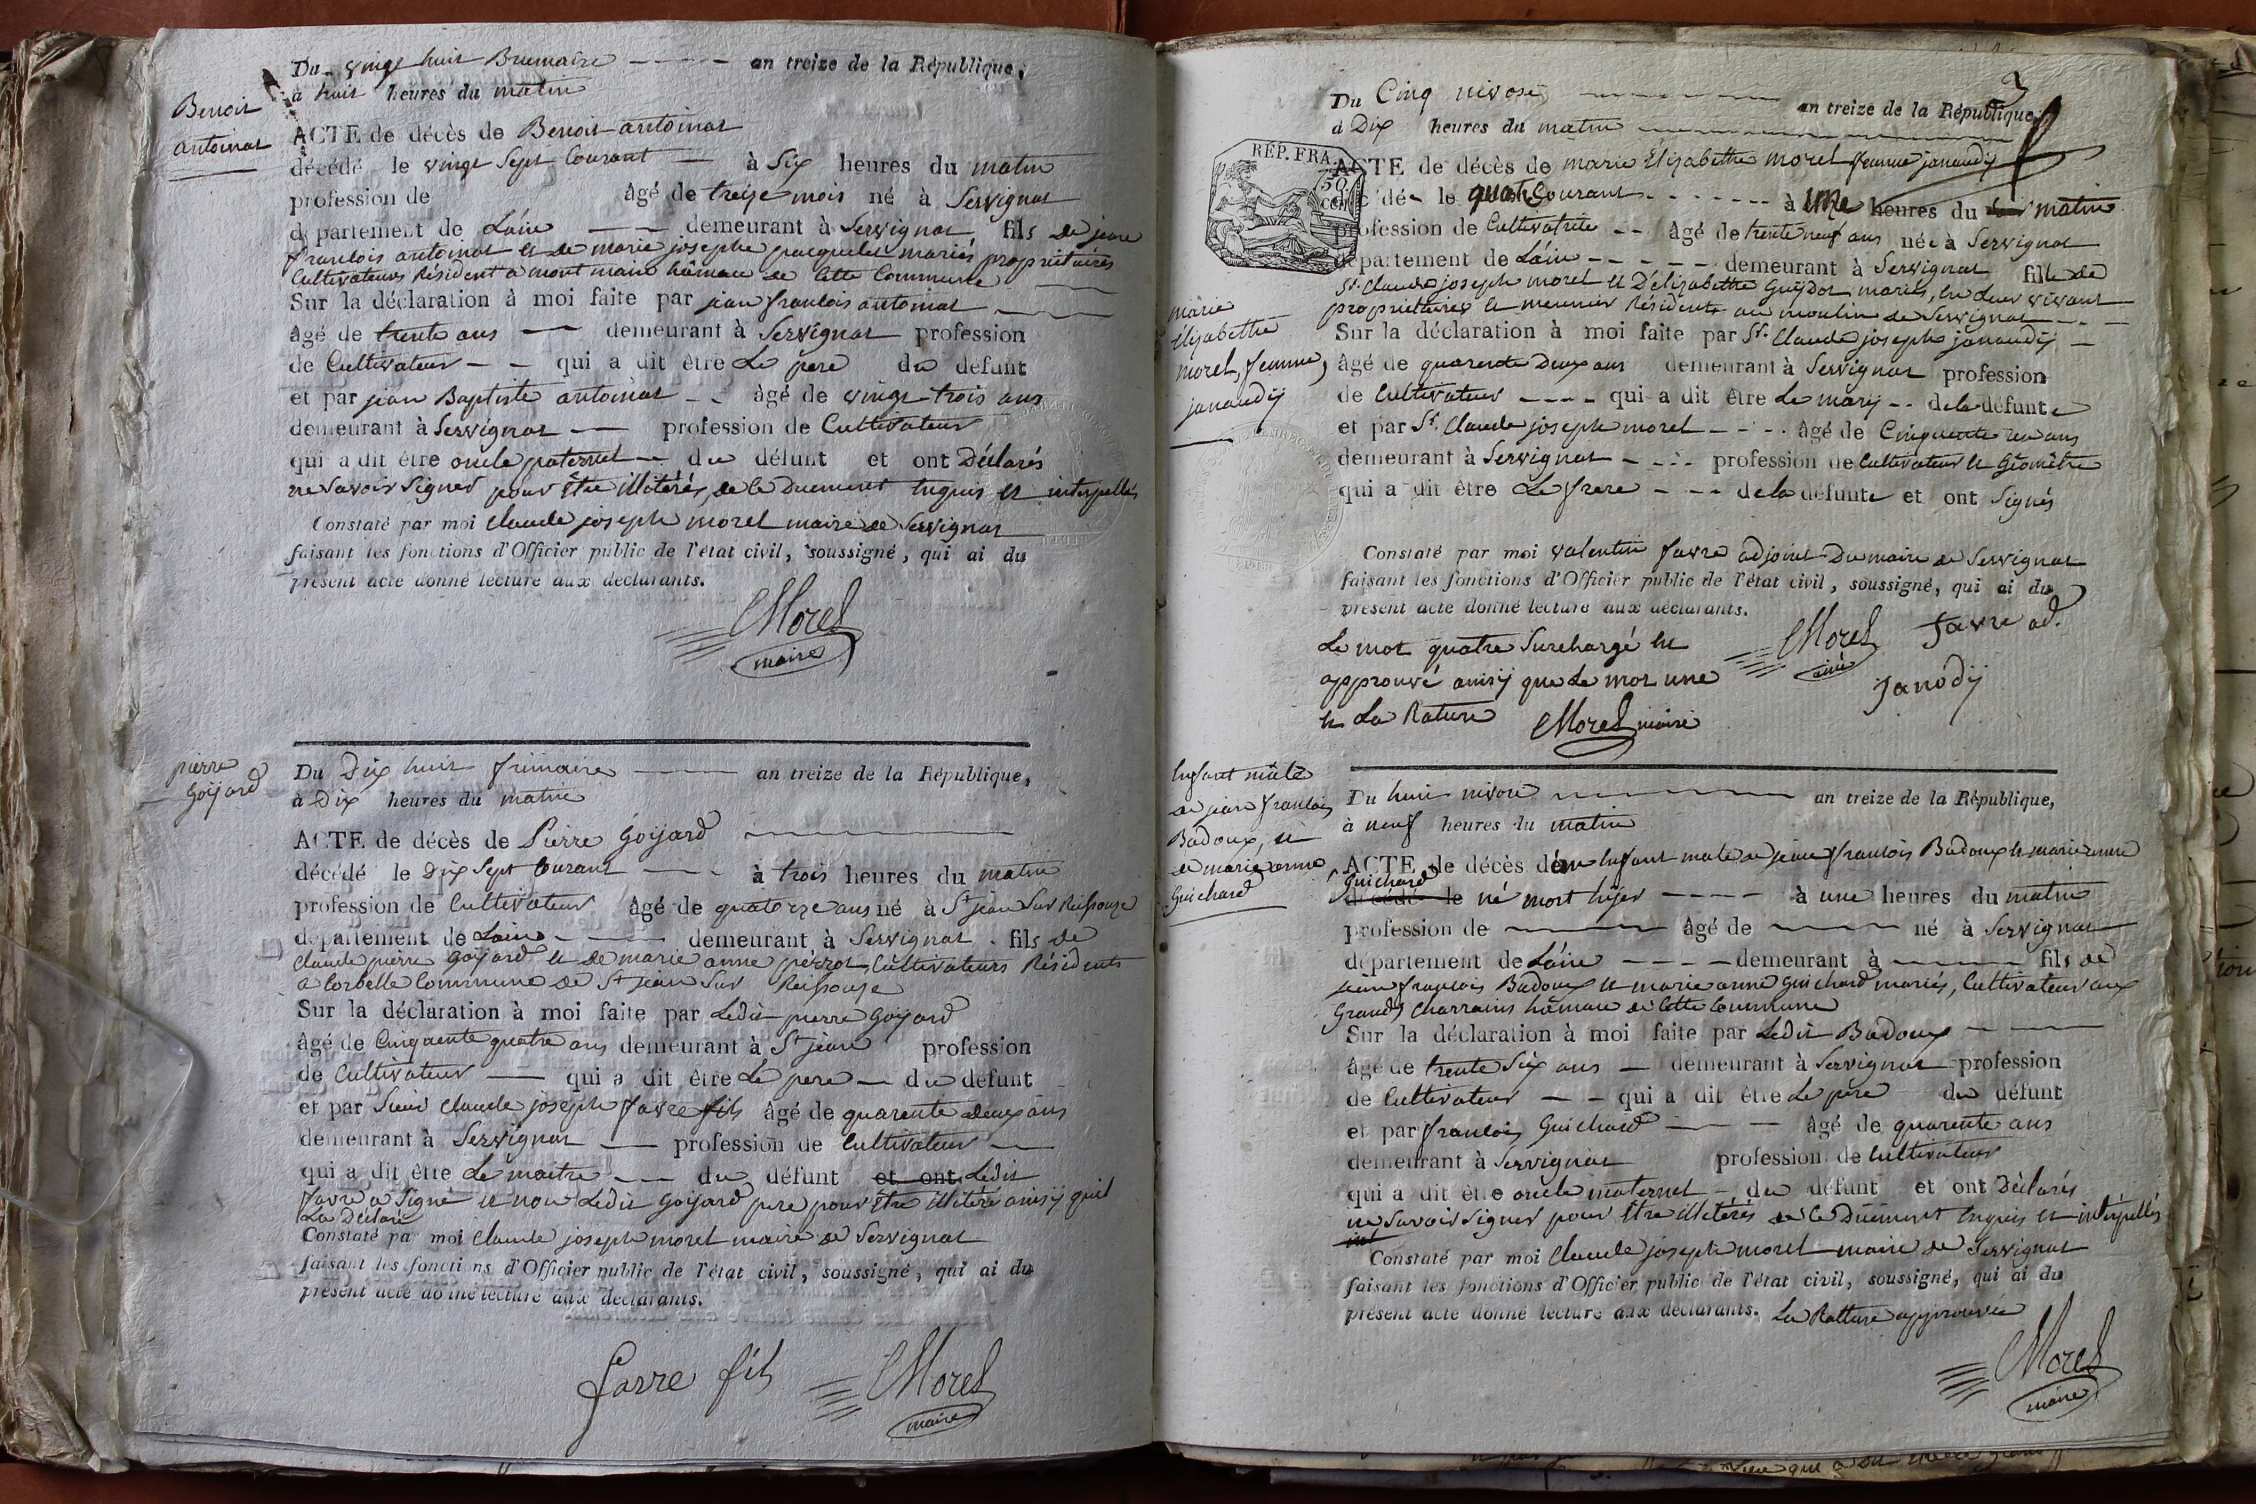 Benoit
antoinat
Du vingt huit Brumaire an treize de la République,
à huit heures du matin
ACTE de décès de Benoit antoinat
décédé le vingt Sept Courant à Six heures du matin
profession de âgé de treize mois né à Servignat
département de Láin demeurant à Servignat fils de jean
francois antoinat et de marie josephe pacquelet mariés propriétaires
Cultivateurs Résident à mont main hâmeau de Cette Commune
Sur la déclaration à moi faite par jean francois antoinat
âgé de trente ans demeurant à Servignat profession
de Cultivateur qui a dit être Le pere du défunt
et par jean Baptiste antoinat âgé de vingt-trois ans
demeurant à Servignat profession de Cultivateur
qui a dit être oncle paternel du défunt et ont Déclarés
ne Savoir Signer pour être illitérés, de ce Duement Enquis et interpellés
Constaté par moi Claude joseph morel maire de Servignat
faisant les fonctions d'Officier public de l'état civil, soussigné, qui ai du
présent acte donné lecture aux déclarants.
Morel
maire
pierre
Goÿard
Du Dix huit frimaire an treize de la République,
à Dix heures du matin
ACTE de décès de Pierre Goÿard
décédé le Dix Sept Courant à trois heures du matin
profession de Cultivateur âgé de quatorze ans né à St jean Sur Reissouze
département de Láin demeurant à Servignat fils de
Claude pierre Goÿard et de marie anne perrot Cultivateurs Résidents
a Corbelle Commune de St jean Sur Reissouze
Sur la déclaration à moi faite par Ledit pierre Goÿard
âgé de Cinquente quatre ans demeurant à St jean profession
de Cultivateur qui a dit être Le pere du défunt
et par Sieur Claude joseph favre fils âgé de quarente deux ans
demeurant à Servignat profession de Cultivateur
qui a dit être Le maitre du défunt et ont Ledit
favre a Signé et non Ledit Goÿard pere pour être illitéré ainsÿ quil
La Déclaré
Constaté par moi Claude joseph morel maire de Servignat
faisant les fonctions d'Officier public de l'état civil, soussigné, qui ai du
présent acte donné lecture aux déclarants.
favre fils Morel
maire
3
Du Cinq nivose an treize de la République,
à Dix heures du matin
REP. FRA.
50
CEN
ACTE de décès de marie Élizabethe morel femme janaudÿ
décédé le quatre Courant à une heures du matin
profession de Cultivatrice âgé de trente neuf ans née à Servignat
département de Láin demeurant à Servignat fille de
Sr Claude joseph morel et D'élizabethe Guÿdot mariés, en Leur vivant
propriétaires et meunier Résidents au moulin de Servignat
marie
Élizabethe
morel, femme
janaudÿ
Sur la déclaration à moi faite par Sr. Claude joseph janaudÿ
âgé de quarente Deux ans demeurant à Servignat profession
de Cultivateur qui a dit être Le marÿ de la défunte
et par Sr. Claude joseph morel âgé de Cinquente un ans
demeurant à Servignat profession de Cultivateur et Géomêtre
qui a dit être Le frere de la défunte et ont Signés
Constaté par moi valentin favre adjoint Du maire de Servignat
faisant les fonctions d'Officier public de l'état civil, soussigné, qui ai du
présent acte donné lecture aux déclarants.
Morel favre ad.
ainé
Janodÿ
Le mot quatre Surchargé est
approuvé ainsÿ que Le mot une
et La Rature Morel maire
Enfant mâle
de jean francois
Badoux, et
de marie anne
Guichard
Du huit nivose an treize de la République,
à neuf heures du matin
ACTE de décès d'un Enfant male de jean francois Badoux et marie anne
Guichard
décédé le né mort hÿer à une heures du matin
profession de âgé de né à Servignat
département de Láin demeurant à fils de
jean francois Badoux et marie anne Guichard mariés, Cultivateur aux
Grands Charrains hâmeau de Cette Commune
Sur la déclaration à moi faite par Ledit Badoux
âgé de trente Six ans demeurant à Servignat profession
de Cultivateur qui a dit être Le pere du défunt
et par francois Guichard âgé de quarente ans
demeurant à Servignat profession de Cultivateur
qui a dit être oncle maternel du défunt et ont Déclarés
ne Savoir Signer pour être illitérés de ce Düement Enquis et intérpellés
Constaté par moi Claude joseph morel maire de Servignat
faisant les fonctions d'Officier public de l'état civil, soussigné, qui ai du
présent acte donné lecture aux déclarants. La Rature approuvée
Morel
maire